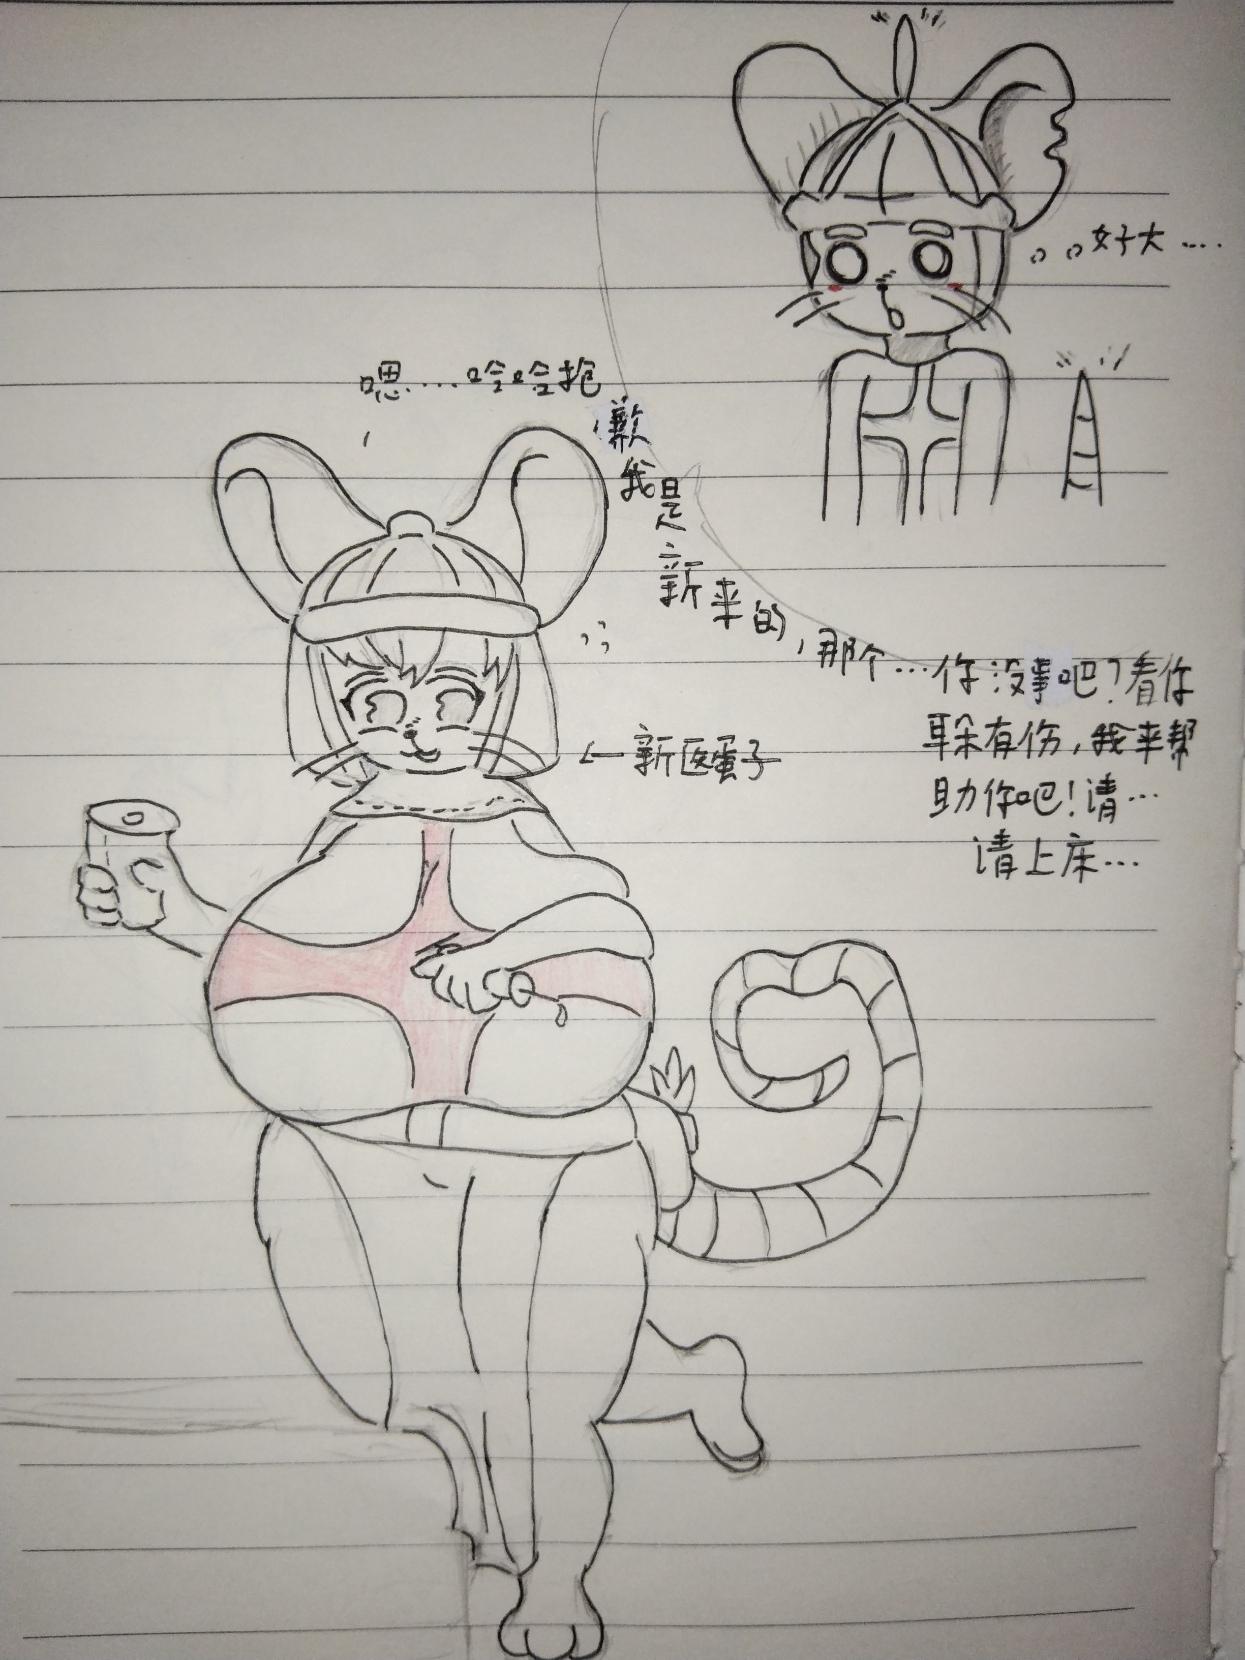 好大....
嗯....哈哈抱
歉
我是
新来的,那个...你没事吧?看你
耳朵有伤,我来帮
助你吧!请...
请上床...
←新医蛋子